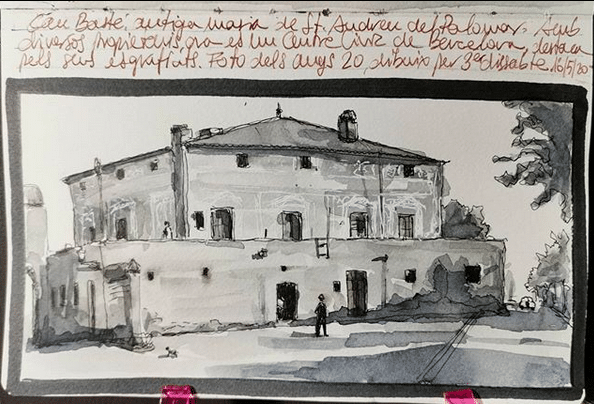 Can Basté, antiga masia de St. Andreu del Palomar. Amb
diversos propietaris, ara es un Centre Cívic de Barcelona, destaca
pels seus esgrafiats. Foto dels anys 20, dibuix per 3er dissabte. 16/5/20